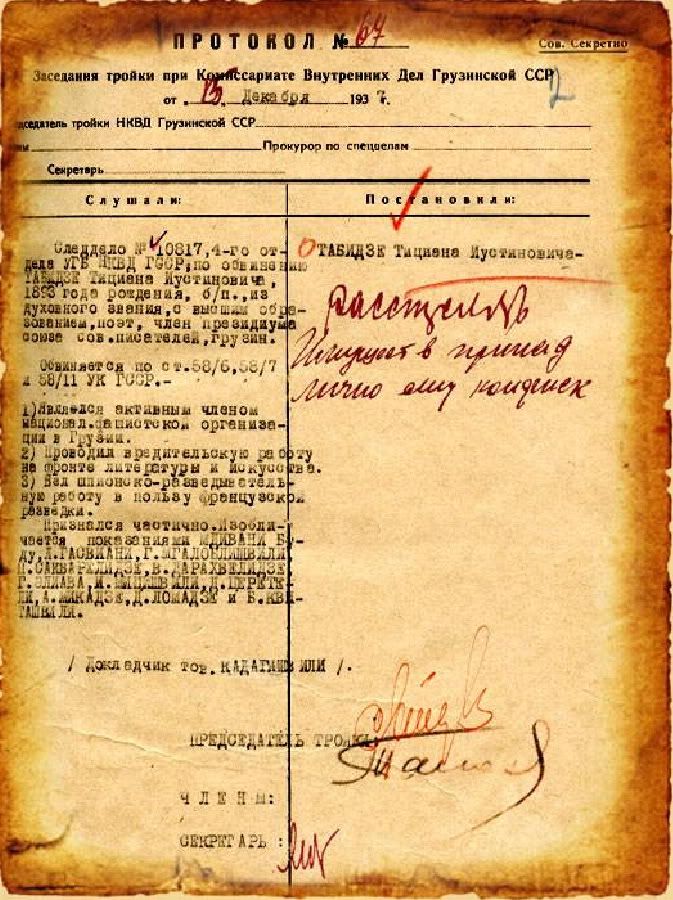 ПРОТОКОЛ № 67
Сов. Секретно
Заседания тройки при Комиссариате Внутренних Дел Грузинской ССР
2
от „ 15 „ Декабря 1937 г.
седатель тройки НКВД Грузинской ССР
Прокурор по спецделам
Секретарь
Слушали:
Постановили:
Следдело № 10817, 4-го от-
дела УГБ НКВД ГССР, по обвинению
ТАБИДЗЕ Тициана Иустиновича,
1893 года рождения, б/п., из
духовного звания, с высшим обра-
зованием, поэт, член президиума
союза сов. писателей, грузин.
Обвиняется по ст.58/6,58/7
и 58/11 УК ГССР.-
1) Являлся активным членом
национал.фашистской организа-
ции в Грузии.
2) Проводил вредительскую работу
на фронте литературы и искусства.
3) Вел шпионско-разведыватель-
ную работу в пользу французской
разведки.
Признался частично. Изобли-
чается показаниями МДИВАНИ Бу-
ду, Л.ГАСВИАНИ, Г.МГАЛОБЛИШВИЛИ,
С.САХВАРЕЛИДЗЕ, В.ДАРАХВЕЛИДЗЕ,
Г.ЭЛИАВА, Н.МИЦИШВИЛИ, Д.ЦЕРЕТЕ-
ЛИ, А.МИКАДЗЕ, Д.ЛОМАДЗЕ и Б.КВИ-
ТАШВИЛИ.
/ Докладчик тов. КАДАГИШВИЛИ /.
О ТАБИДЗЕ Тициана Иустиновича-
Расстрелять
Имуществ принад
лично ему конфиск
ПРЕДСЕДАТЕЛЬ ТРОЙКИ:
ЧЛЕНЫ:
СЕКРЕТАРЬ :